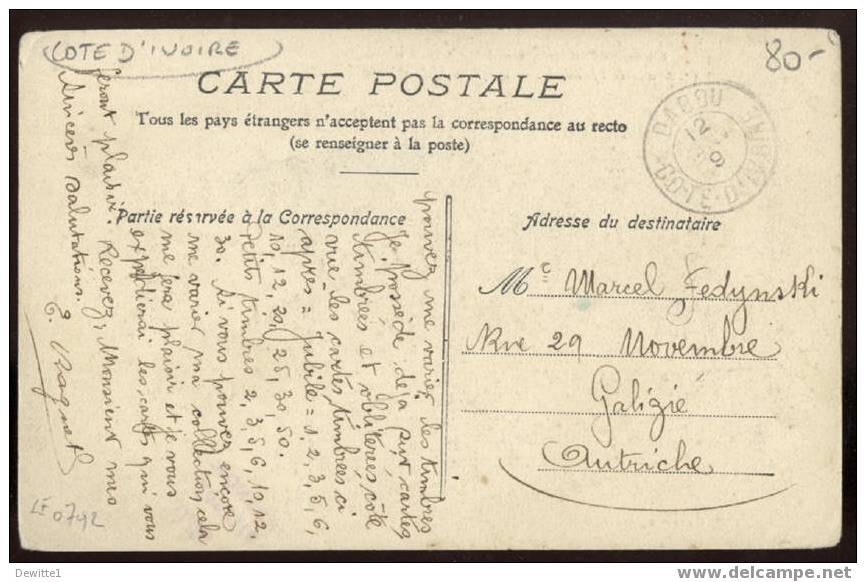 COTE D'IVOIRE
80-
CARTE POSTALE
Tous les pays étrangers n'acceptent pas la correspondance au recto
(se renseigner à la poste)
DABOU
12
09
COTE-D'IVOIRE
Partie réservée à la Correspondance
Adresse du destinataire
Mr Marcel Fedynski
Rue 29 Novembre
Galigié
Autriche
pouvez me varier les timbres
Je possède déjà sur cartes
timbrées et oblitérées côté
vue les cartes timbrées ci
après = Jubilé = 1, 2, 3, 5, 6,
10, 12, 20, 25, 30, 50.
Petits timbres 2, 3, 5, 6, 10, 12,
30. Si vous pouvez encore
me varier ma collection, cela
me fera plaisir et je vous
expédierai les cartes qui vous
feront plaisir. Recevez, Monsieur mes
sincères salutations.
E.
LE 0742
Dewitte1
www.delcampe.net